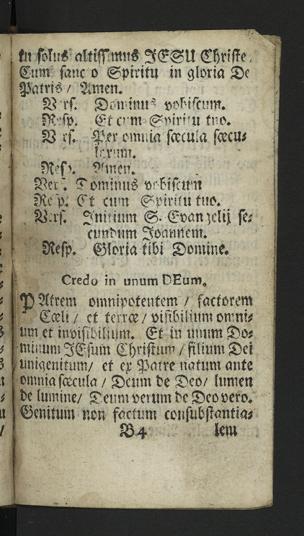 tu solus altissimus JESU Christe.
Cum sancto Spiritu in gloria De
Patris / Amen.
Vers. Dominus vobiscum.
Resp. Et cum Spiritu tuo.
Vers. Per omnia sœcula sœcu-
lorum.
Resp. Amen.
Vers. Dominus vobiscum
Resp. Et cum Spiritu tuo.
Vers. Initium S. Evangelij se-
cundum Joannem.
Resp. Gloria tibi Domine.
Credo in unum DEum.
PAtrem omnipotentem / factorem
Cœli / et terræ / visibilium omni-
um et invisibilium. Et in unum Do-
minum JEsum Christum / filium Dei
unigenitum / et ex Patre natum ante
omnia sœcula / Deum de Deo / lumen
de lumine / Deum verum de Deo vero.
Genitum non factum consubstantia-
B4 lem